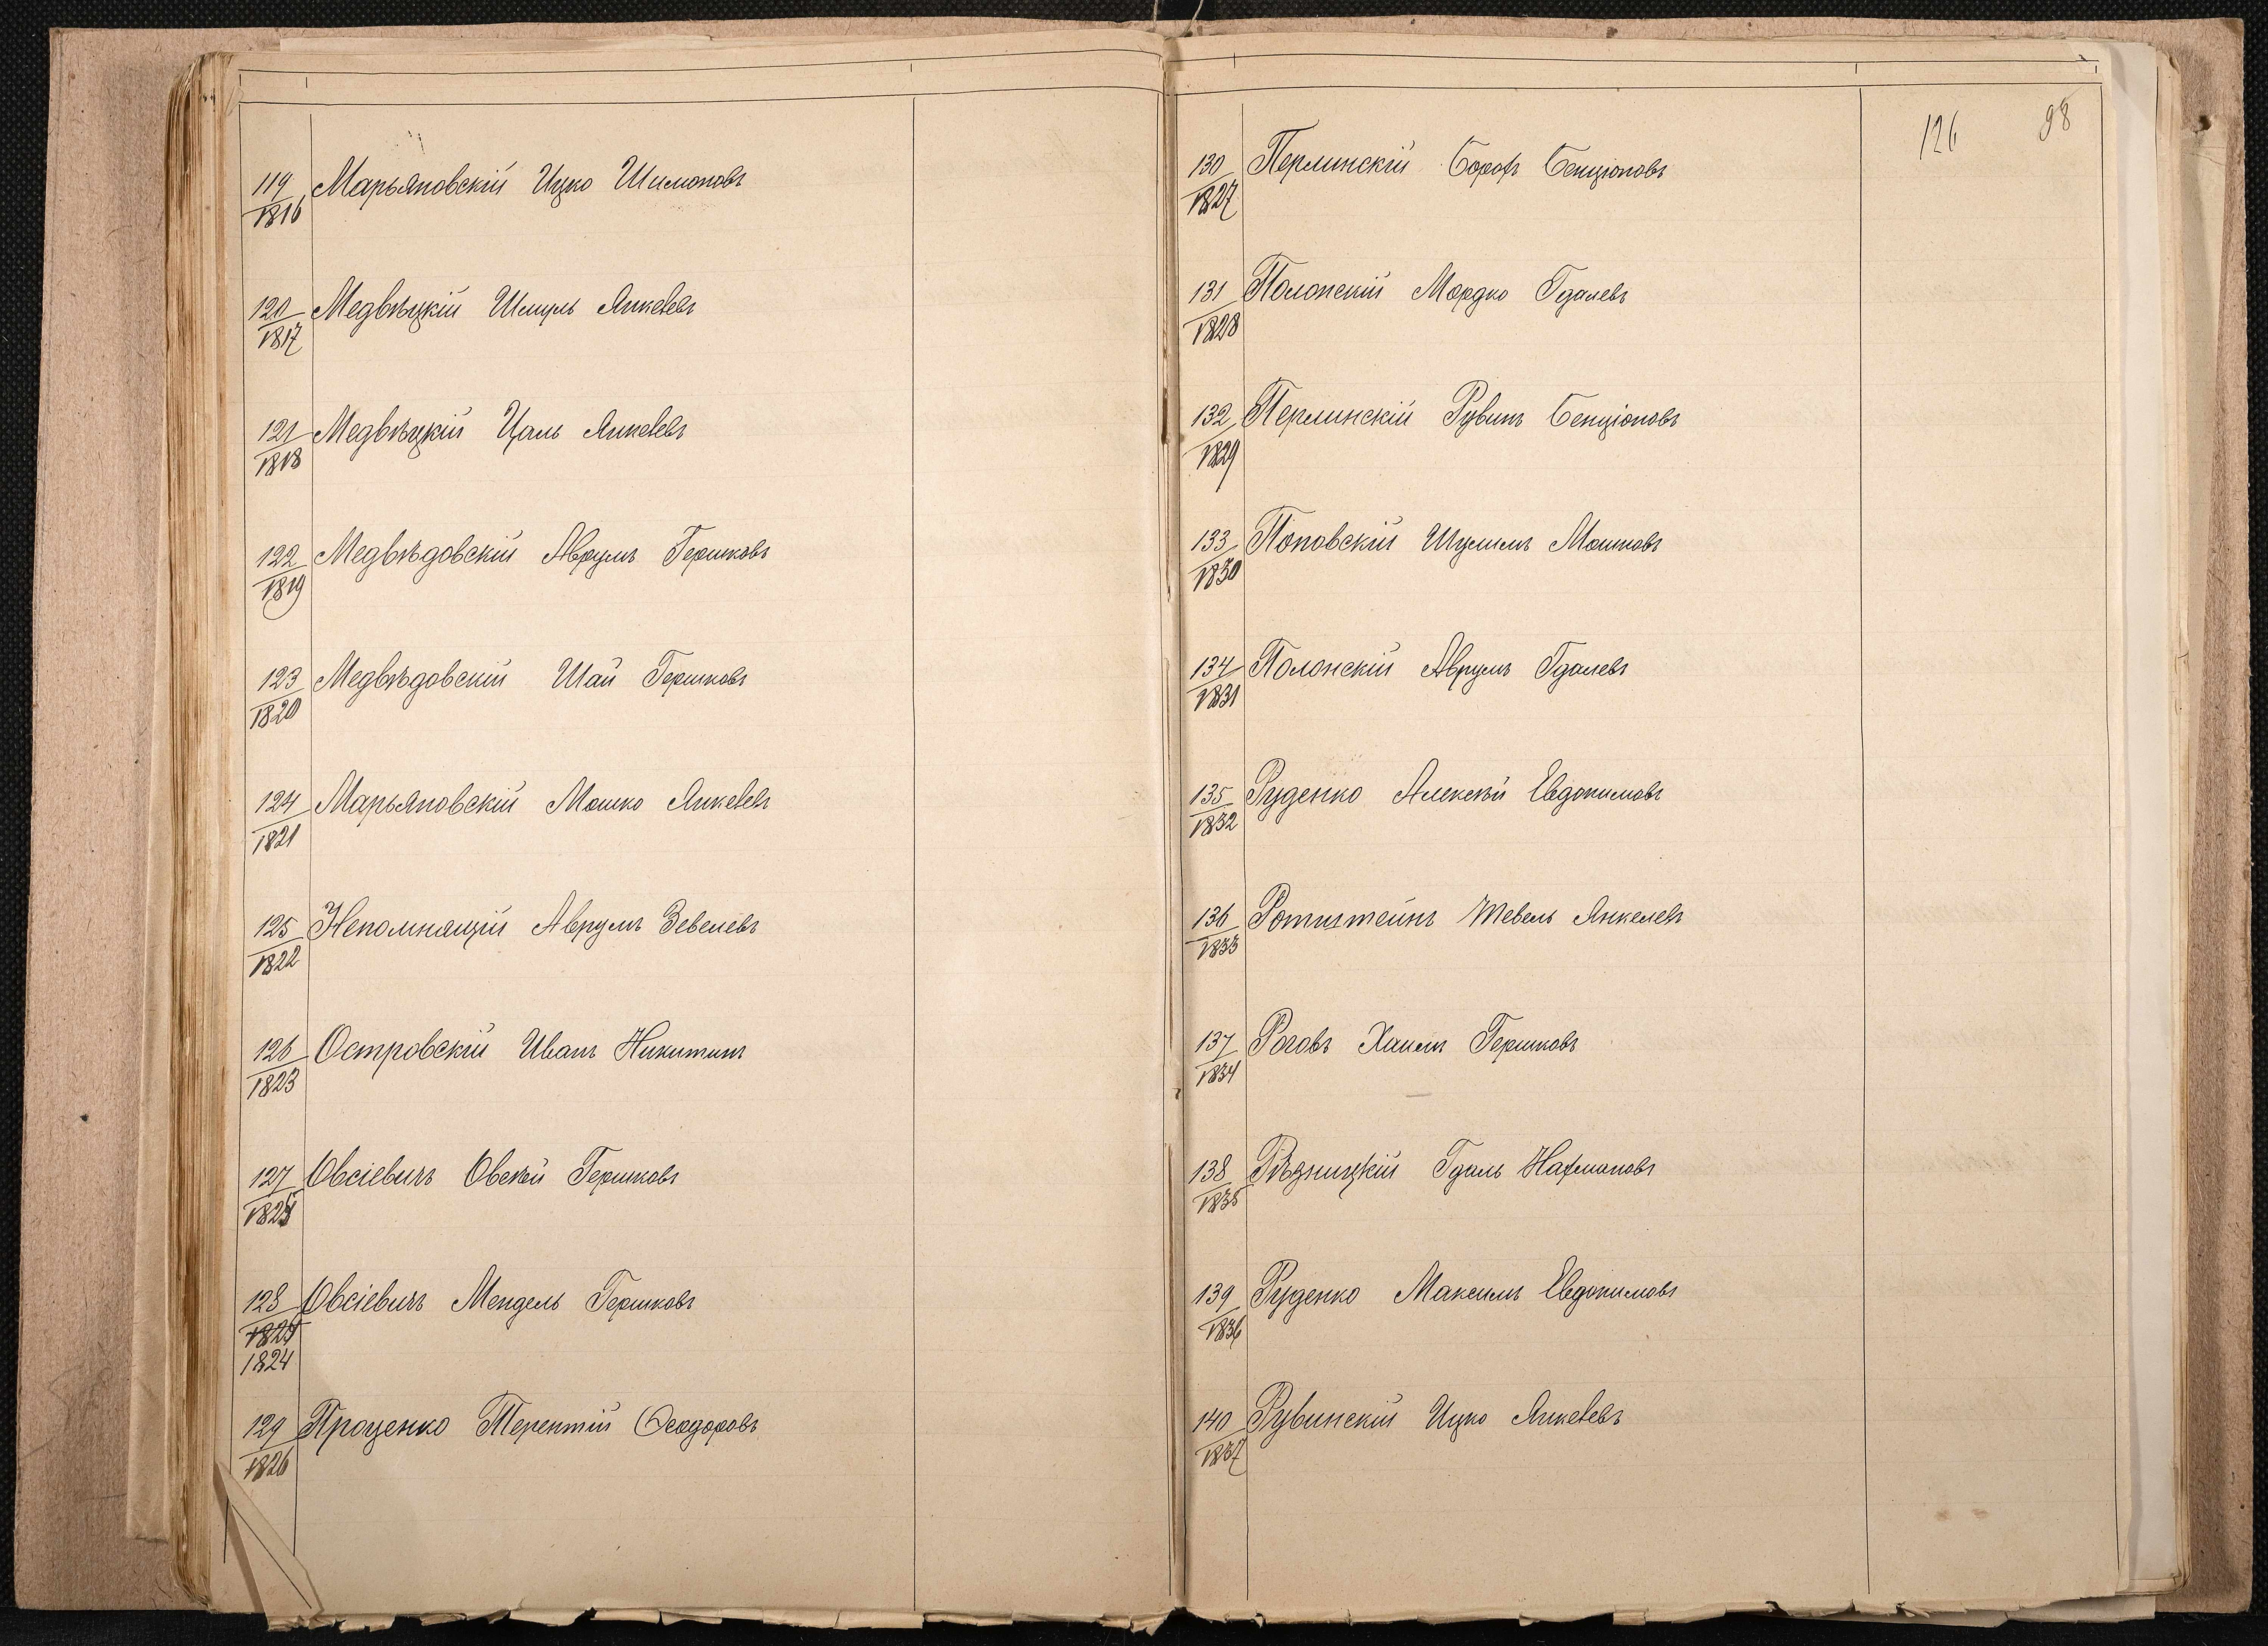 119 Марьяновскій Ицко Шимоновъ
1816
120 Медвѣцкій Шмуль Янкелевъ
1817
121 Медвѣцкій Цаль Янкелевъ
1818
122 Медвѣдовскій Аврумъ Гершковъ
1819
123 Медвѣдовскій Шай Гершковъ
1820
124 Марьяновскій Мошко Янкелевъ
1821
125 Непомнящій Аврумъ Зевелевъ
1822
126 Островскій Иванъ Никитинъ
1823
127 Овсіевичъ Овсѣй Гершковъ
1825
128 Овсіевичъ Мендель Гершковъ
1824
129 Проценко Терентій Ѳеодоровъ
1826
126 98
130 Перлинскій Борохъ Бенціоновъ
1827
131 Полонскій Мордко Гдалевъ
1828
132 Перлинскій Рувинъ Бенціоновъ
1829
133 Поповскій Шулимъ Мошковъ
1830
134 Полонскій Аврумъ Гдалевъ
1831
135 Руденко Алексѣй Евдокимовъ
1832
136 Ротштейнъ Тевель Янкелевъ
1833
137 Роговъ Хаимъ Гершковъ
1834
138 Рѣзницкій Гдаль Нахмановъ
1835
139 Руденко Максимъ Евдокимовъ
1836
140 Рувинскій Ицко Янкелевъ
1837